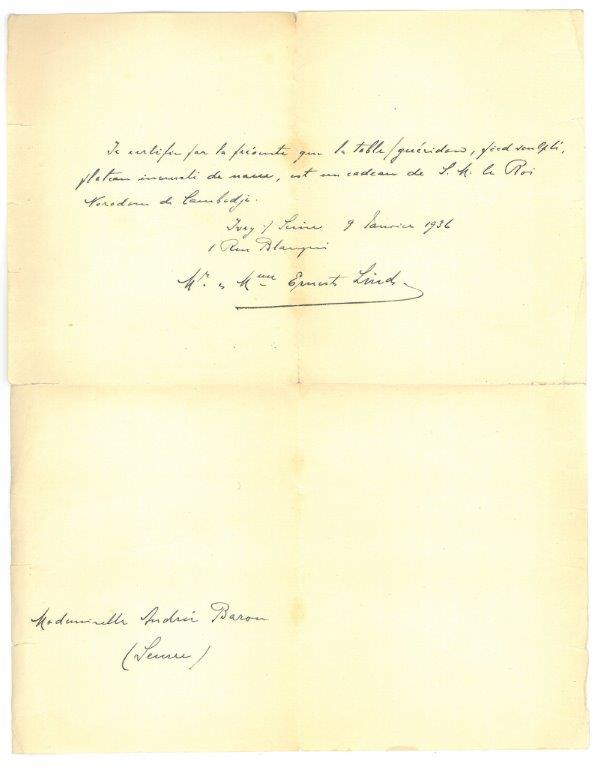 Je certifie par la présente que la table/guéridon, pied sculpté,
plateau incrusté de nacre, est un cadeau de S. M. le Roi
Norodom de Cambodje.
Ivry s/ Seine 9 Janvier 1936
1 Rue Blanqui
Mr. & Mme Ernest
Mademoiselle Andrée Baron